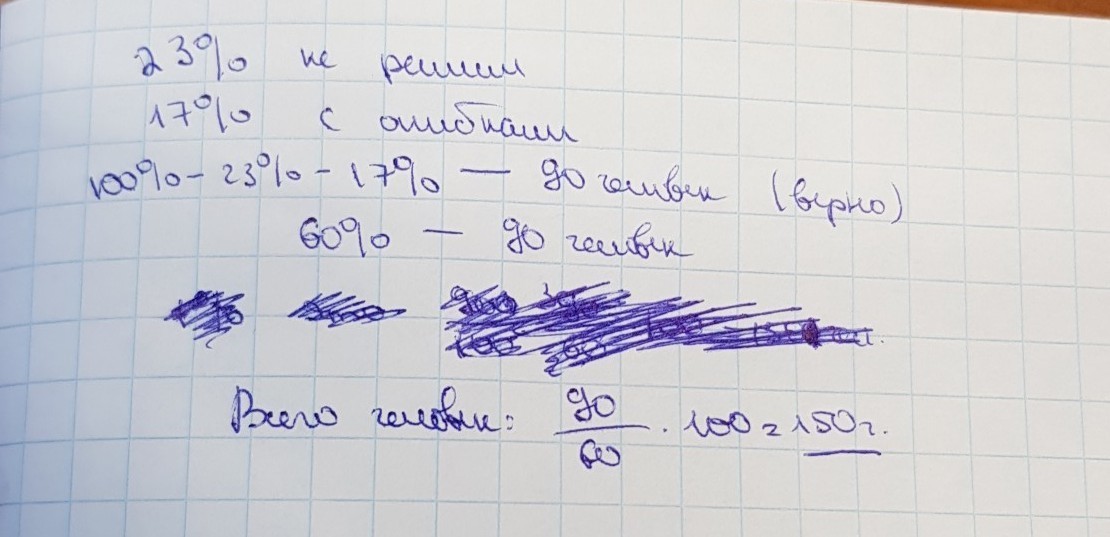 23% не решили
17% с ошибками
100% - 23% - 17% — 90 человек (верно)
60% — 90 человек
Всего человек: 90/60 · 100 = 150 ч.